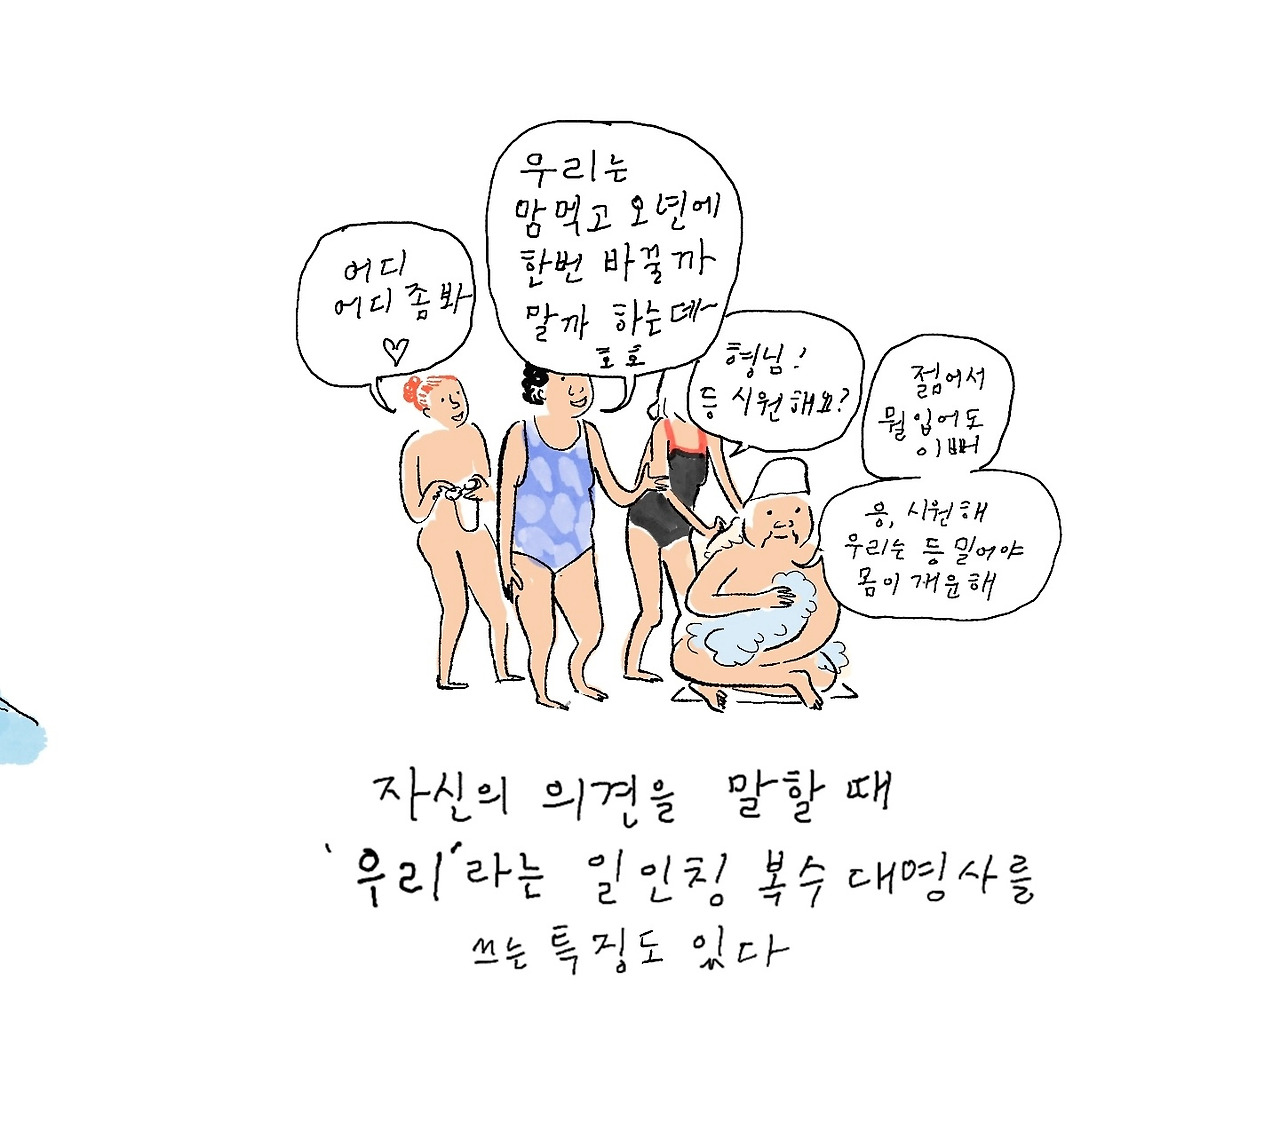 어디
어디 좀 봐
♡
우리는
맘 먹고 오년에
한번 바꿀까
말까 하는데~
호호
형님!
등 시원해요?
젊어서
뭘 입어도
이뻐
응, 시원해
우리는 등 밀어야
몸이 개운해
자신의 의견을 말할 때
'우리'라는 일인칭 복수 대명사를
쓰는 특징도 있다